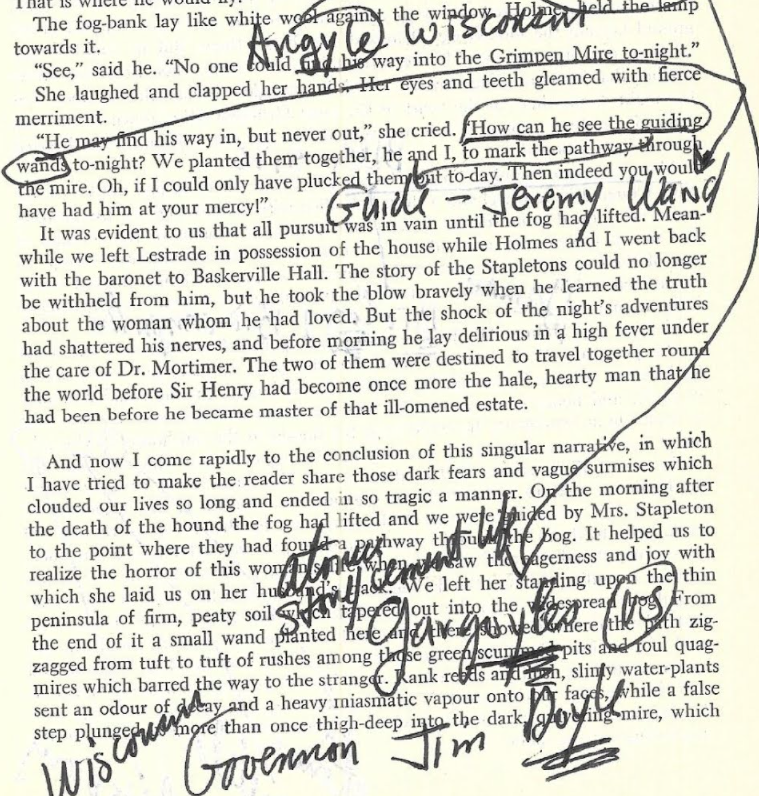 That is where he would fly.
The fog-bank lay like white wool against the window. Holmes held the lamp
towards it.
Argyle Wisconsin
“See,” said he. “No one could find his way into the Grimpen Mire to-night.”
She laughed and clapped her hands. Her eyes and teeth gleamed with fierce
merriment.
“He may find his way in, but never out,” she cried. “How can he see the guiding
wands to-night? We planted them together, he and I, to mark the pathway through
the mire. Oh, if I could only have plucked them out to-day. Then indeed you would
have had him at your mercy!”
Guide - Jeremy Wand
It was evident to us that all pursuit was in vain until the fog had lifted. Mean-
while we left Lestrade in possession of the house while Holmes and I went back
with the baronet to Baskerville Hall. The story of the Stapletons could no longer
be withheld from him, but he took the blow bravely when he learned the truth
about the woman whom he had loved. But the shock of the night's adventures
had shattered his nerves, and before morning he lay delirious in a high fever under
the care of Dr. Mortimer. The two of them were destined to travel together round
the world before Sir Henry had become once more the hale, hearty man that he
had been before he became master of that ill-omened estate.
And now I come rapidly to the conclusion of this singular narrative, in which
I have tried to make the reader share those dark fears and vague surmises which
clouded our lives so long and ended in so tragic a manner. On the morning after
the death of the hound the fog had lifted and we were guided by Mrs. Stapleton
to the point where they had found a pathway through the bog. It helped us to
realize the horror of this woman's life when we saw the eagerness and joy with
which she laid us on her husband's track. We left her standing upon the thin
peninsula of firm, peaty soil which tapered out into the widespread bog. From
the end of it a small wand planted here and there showed where the path zig-
zagged from tuft to tuft of rushes among those green scummed pits and foul quag-
mires which barred the way to the stranger. Rank reeds and lush, slimy water-plants
sent an odour of decay and a heavy miasmatic vapour onto our faces, while a false
step plunged us more than once thigh-deep into the dark, quivering mire, which
stone cement like
gargoyles
Wisconsin Governor Jim Doyle